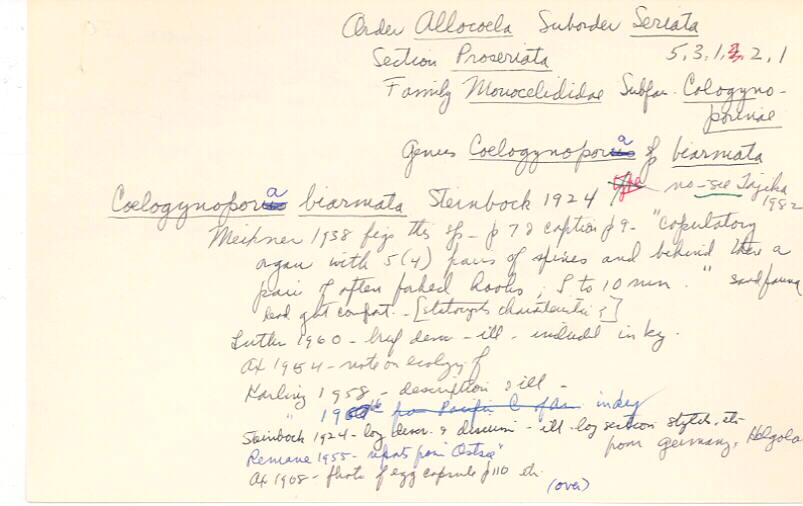 Order Allocoela Suborder Seriata
Section Proseriata 5, 3, 1, 2, 2, 1
Family Monocelididae Subfam. Cologyno-
porinae
Genus Coelogynopora sp biarmata
Coelogynopora biarmata Steinbock 1924 no - see Tajika
1982
Meixner 1938 figs this sp - p 7 & caption p 9 - "copulatory
organ with 5(4) pairs of spines and behind there a
pair of often forked hooks; 8 to 10 mm." sandfauna
[statocysts characteristic]
Luther 1960 - brief descr - ill - included in key.
Ax 1954 - note on ecology of
Karling 1958 - description & ill -
" 19 for Pacific C of in key
Steinbock 1924 - log descr. & discussi - ill - log section styles, etc
from Germany, Helgola
Remane 1955 - reports from "Ostsee"
Ax 1908 - photo of egg capsule p 110 etc.
(over)